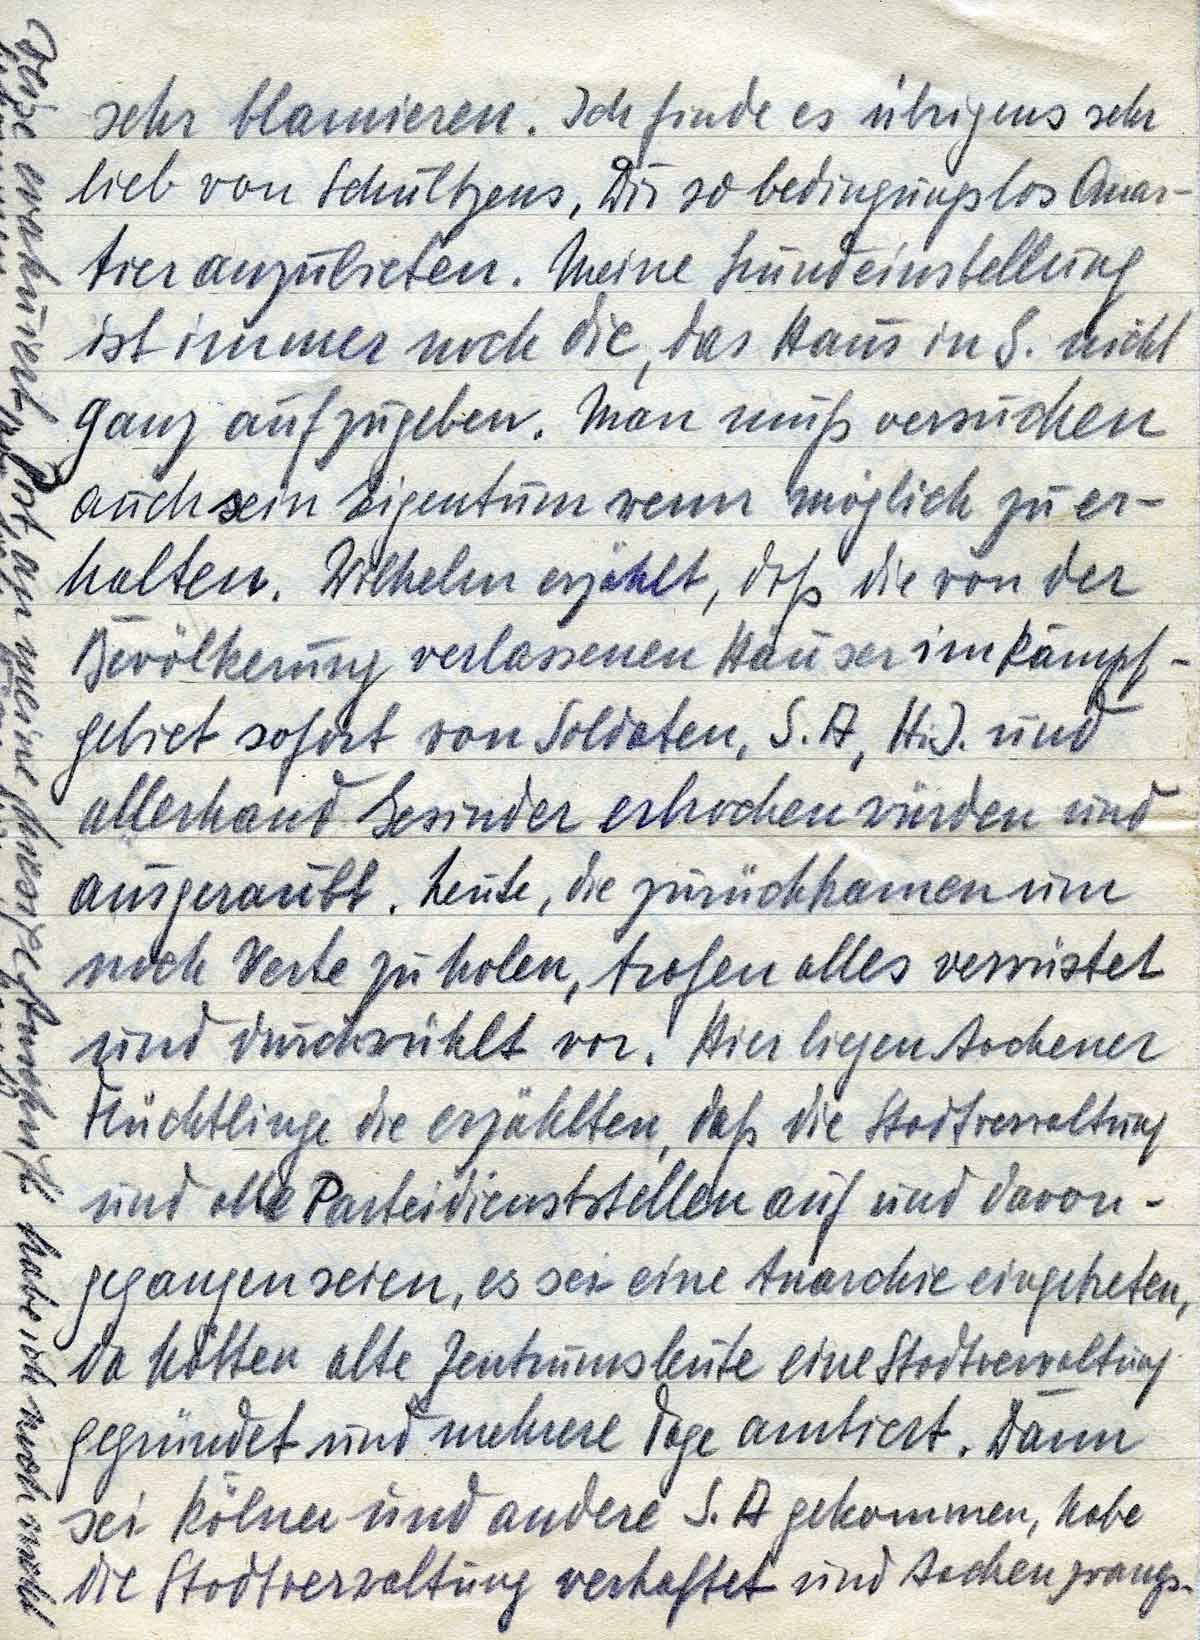 sehr blamieren. Ich finde es übrigens sehr
lieb von Schultzens, Dir so bedingungslos Quar-
tier anzubieten. Meine Grundeinstellung
ist immer noch die, das Haus in G. nicht
ganz aufzugeben. Man muß versuchen
auch sein Eigentum wenn möglich zu er-
halten. Wilhelm erzählt, daß die von der
Bevölkerung verlassenen Häuser im Kampf-
gebiet sofort von Soldaten, S.A, H.J. und
allerhand Gesinder erbrochen würden und
ausgeraubt. Leute, die zurückkamen um
noch Werte zu holen, trafen alles verwüstet
und durchwühlt vor. Hier liegen Aachener
Flüchtlinge die erzählten, daß die Stadtverwaltung
und alle Parteidienststellen auf und davon-
gegangen seien, es sei eine Anarchie eingetreten,
da hätten alte Zentrumsleute eine Stadtverwaltung
gegründet und mehrere Tage amtiert. Dann
sei Kölner und andere S.A gekommen, habe
die Stadtverwaltung verhaftet und Aachen zwangs-
evakuiert. Post an meine hiesige Anschrift habe ich noch nicht